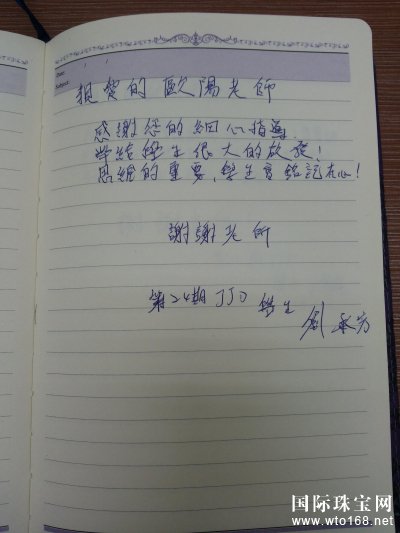 Date:
Subject:
親愛的 歐陽老師
感謝您的細心指導
學生很大的啟發！
思維的重要，學生會銘記在心！
謝謝老師
第24期JJD 學生
国际珠宝网
www.wto168.net